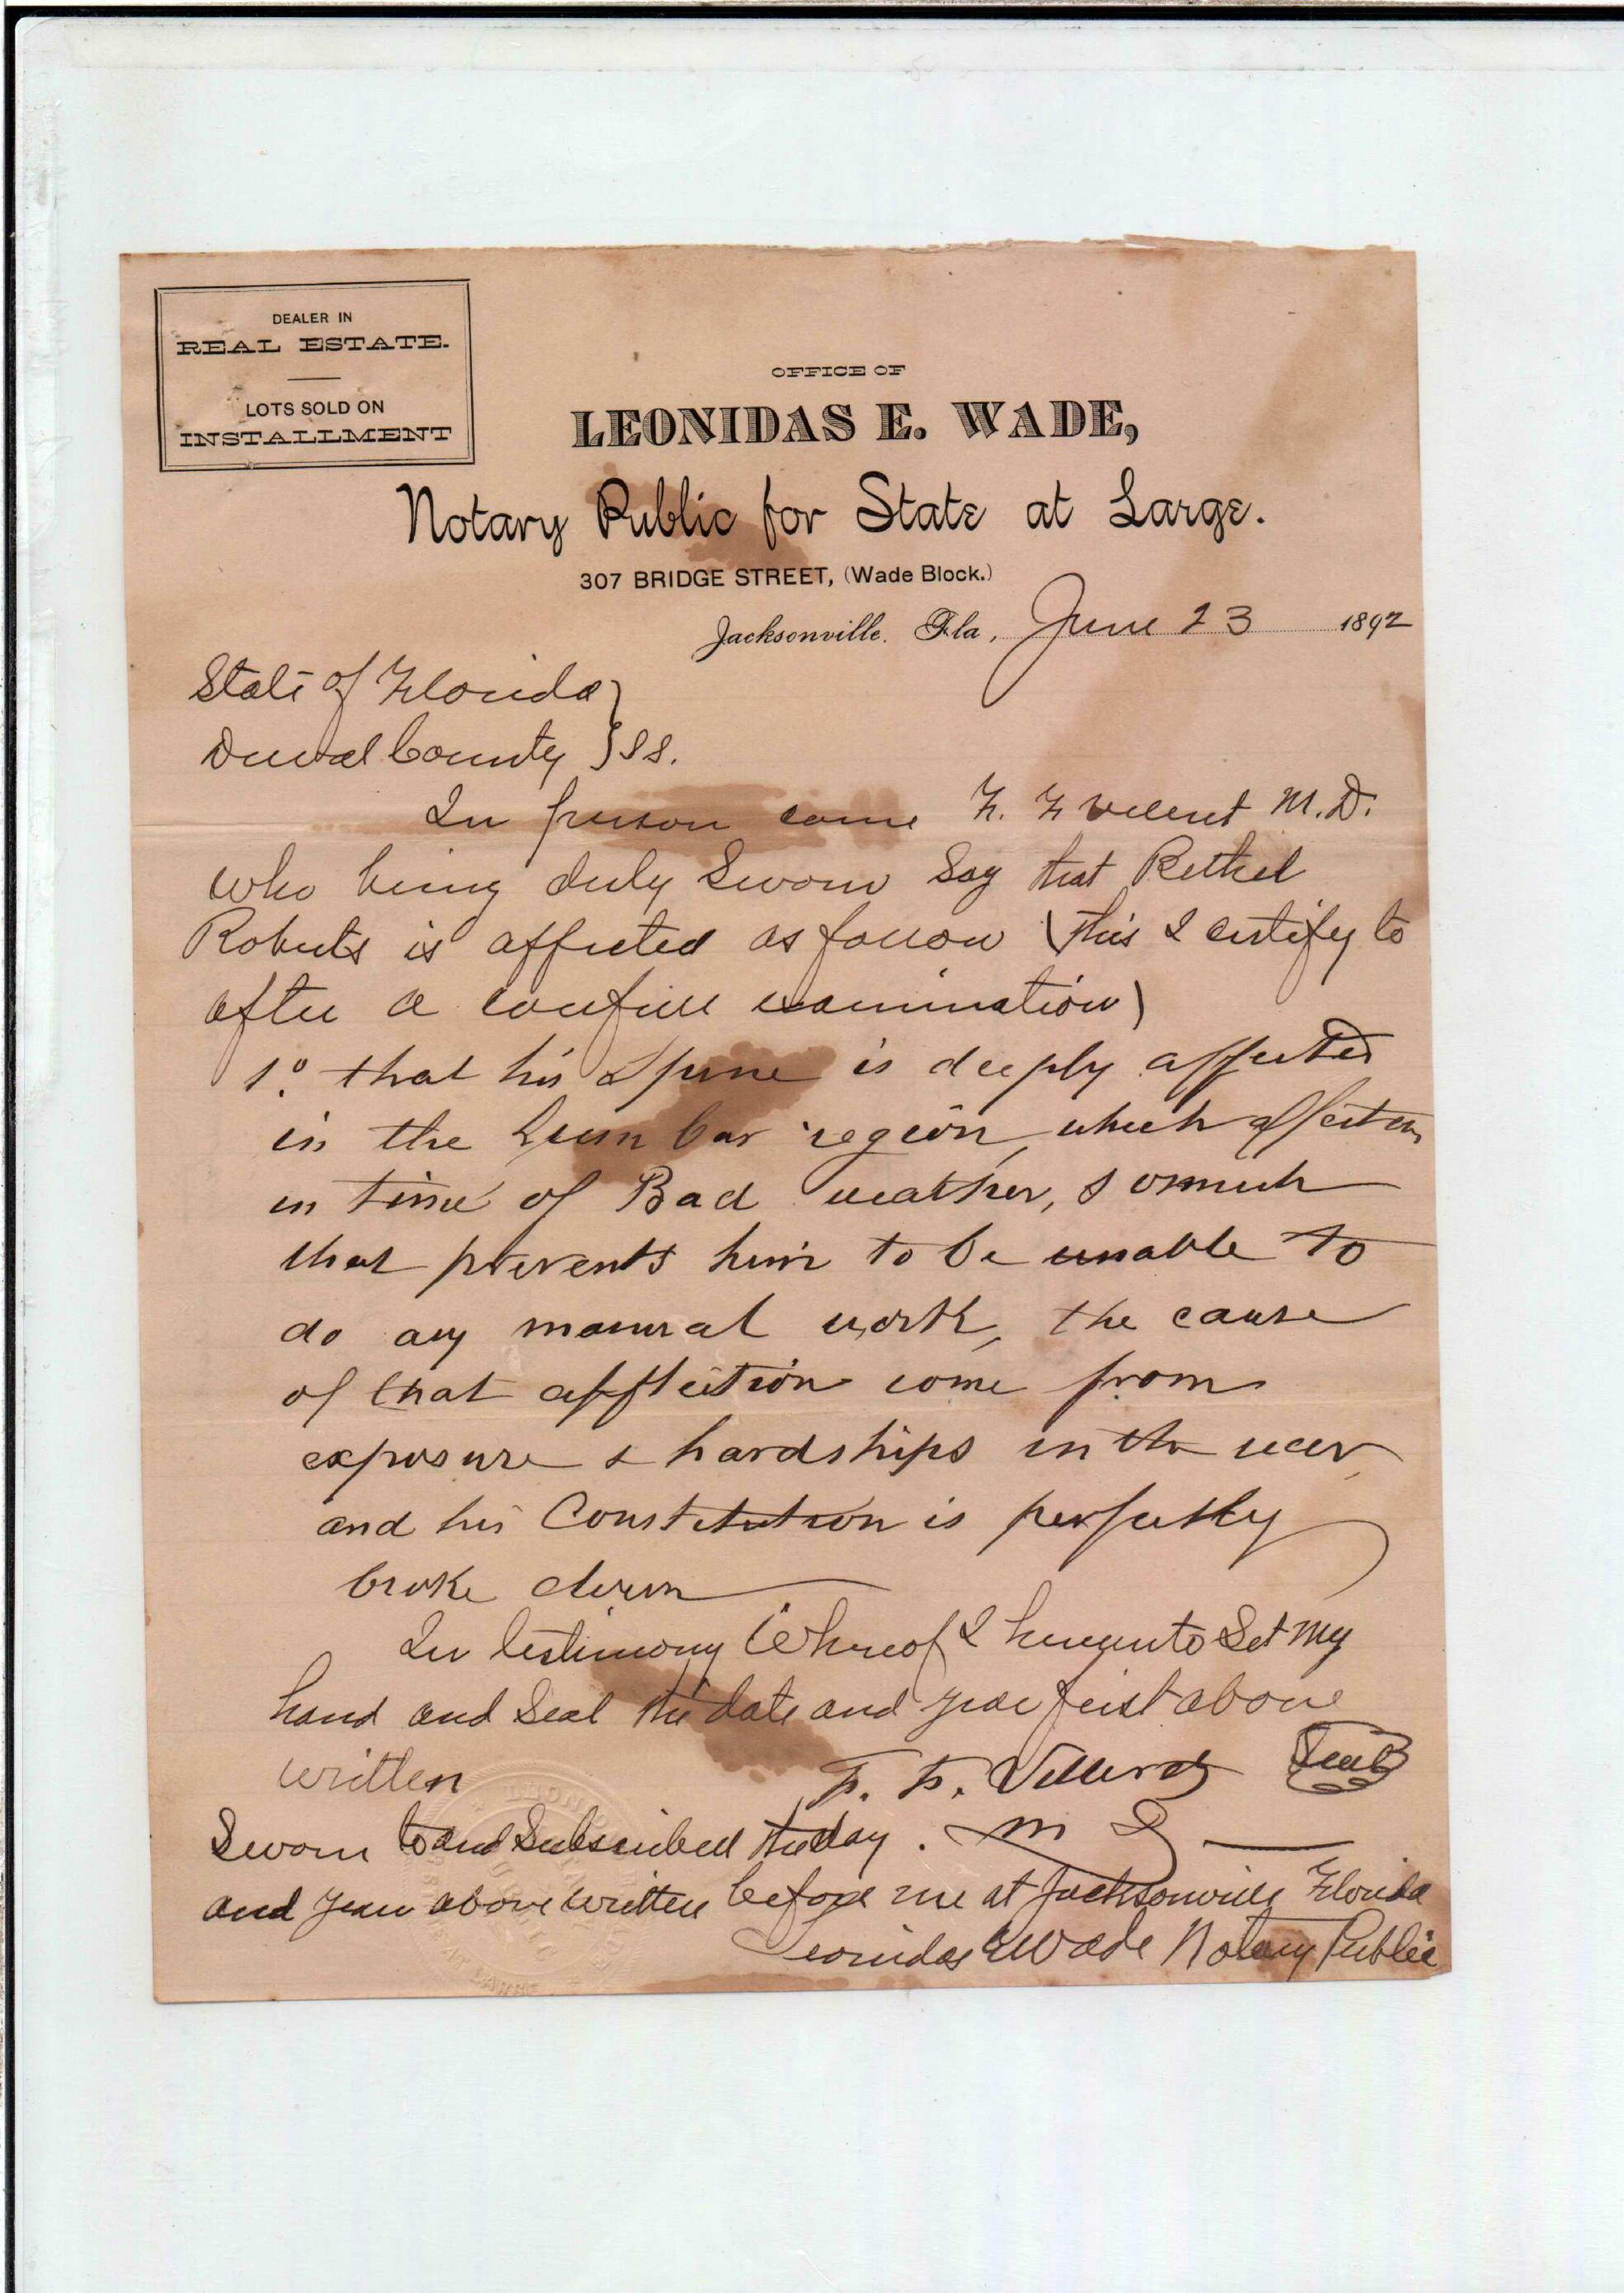 DEALER IN
REAL ESTATE.
LOTS SOLD ON
INSTALLMENT
OFFICE OF
LEONIDAS E. WADE,
Notary Public for State at Large.
307 BRIDGE STREET, (Wade Block.)
Jacksonville, Fla, June 23 1892
State of Florida }
Duval County } SS.
In person came F. F M.D.
who being duly Sworn Say that Bethel
Roberts is afflicted as follow (This I certify to
after a carefull examination)
1º. that his Spine is deeply affected
in the Lumbar region, which affection
in time of Bad weather, so much
that prevents him to be unable to
do any manual work, the cause
of that affliction come from
exposure & hardships in the war
and his Constitution is perfectly
broke down
In testimony Whereof I hereunto Set my
hand and Seal the date and year first above
written F. F. Seal
Sworn to and Subscribed the day. M D
and year above written before me at Jacksonville Florida
Leonidas E Wade Notary Public